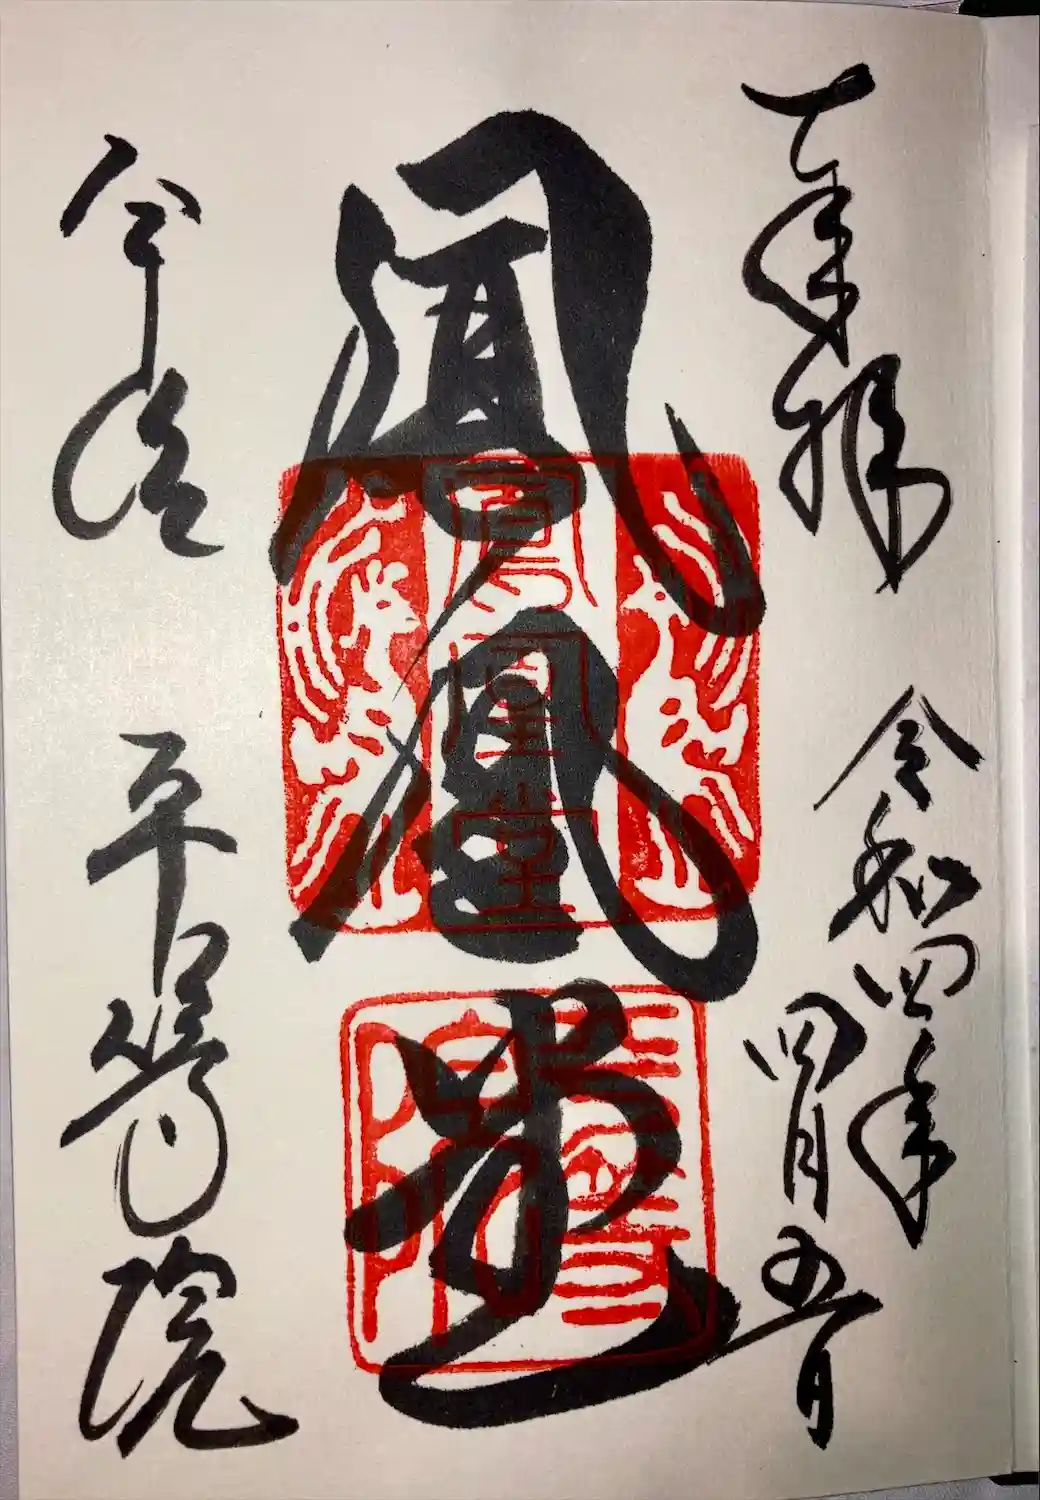 奉拝
令和四年
四月五日
鳳凰堂
鳳凰堂
平等院
宇治 平等院